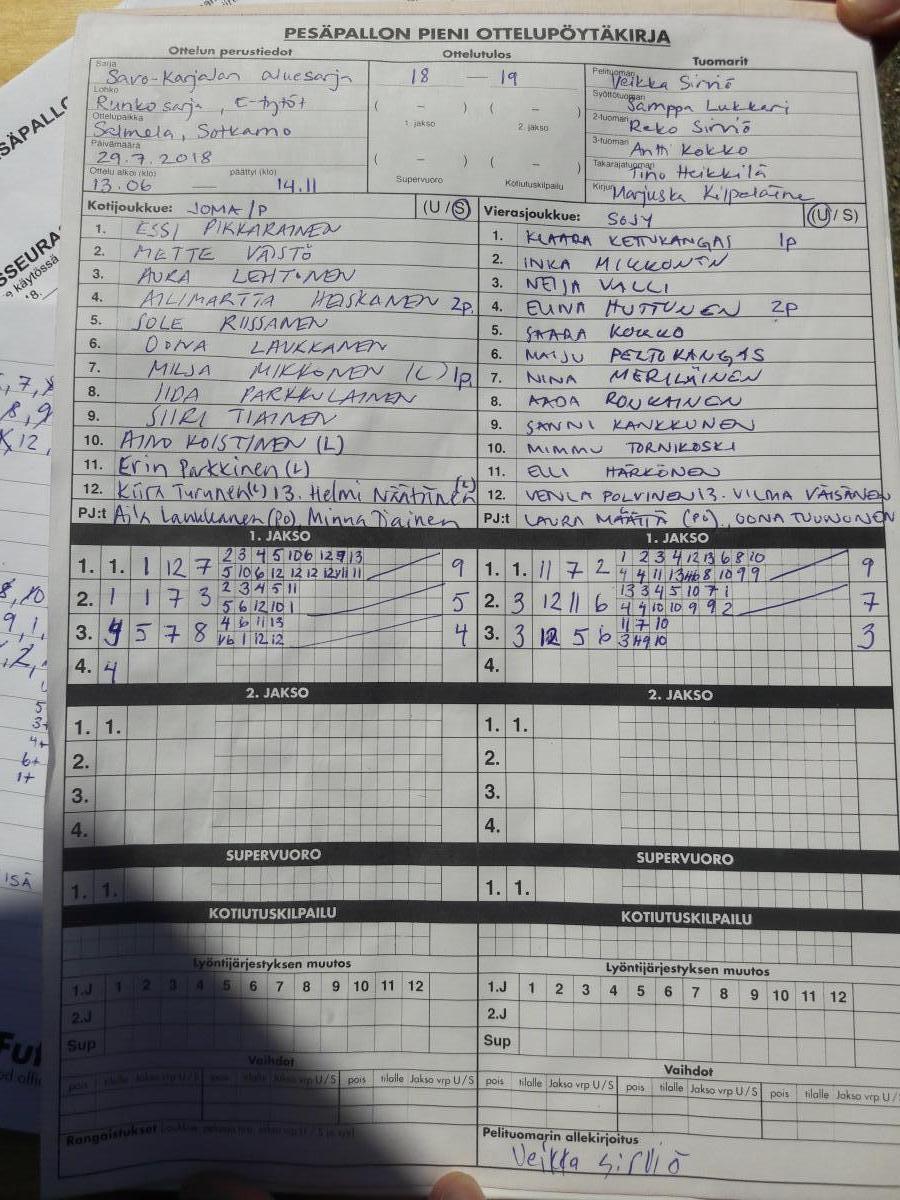 PESÄPALLON PIENI OTTELUPÖYTÄKIRJA
Ottelun perustiedot
Ottelutulos
Tuomarit
Sarja
Savo-Karjalan aluesarja
Lohko
Runkosarja, E-tytöt
Ottelupaikka
Salmela, Sotkamo
Päivämäärä
29.7.2018
Ottelu alkoi (klo) päättyi (klo)
13.06 — 14.11
18 — 19
( – ) ( – )
1. jakso 2. jakso
( – ) ( – )
Supervuoro Kotiutuskilpailu
Pelituomari
Veikka Sirviö
Syöttötuomari
Samppa Lukkari
2-tuomari
Reko Sirviö
3-tuomari
Antti Kokko
Takarajatuomari
Tino Heikkilä
Kirjuri
Marjuska Kilpeläine
Kotijoukkue: JOMA/P (U/S)
1. ESSI PIKKARAINEN
2. METTE VÄISTÖ
3. AURA LEHTONEN
4. AILIMARTTA HEISKANEN 2p.
5. SOLE RIISSANEN
6. OONA LAUKKANEN
7. MILJA MIKKONEN (L) 1p
8. IIDA PARKKULAINEN
9. SIIRI TIAINEN
10. AINO KOISTINEN (L)
11. Erin Parkkinen (L)
12. Kiira Turunen (L) 13. Helmi Näätänen (L)
PJ:t Laukkanen (PO) Minna Tiainen
Vierasjoukkue: SOJY (U/S)
1. KLAARA KETUKANGAS 1p
2. INKA MIKKONEN
3. NEIJA VALLI
4. ELINA HUTTUNEN 2p
5. SAARA KOKKO
6. MAIJU PELTOKANGAS
7. NINA MERILÄINEN
8. AADA ROUKAINEN
9. SANNI KANKKUNEN
10. MIMMU TORNIKOSKI
11. ELLI HÄRKÖNEN
12. VENLA POLVINEN 13. VILMA VÄISÄNEN
PJ:t LAURA MÄÄTTÄ (PO), OONA TUUNONEN
1. JAKSO
1. 1. 1 12 7 2 3 4 5 10 6 12 9 13 9
2. 1 1 7 3 2 3 4 5 11 5
5 6 12 10 1
3. 4 5 7 8 4 6 11 13 4
4. 4
1. JAKSO
1. 1. 11 7 2 1 2 3 4 12 13 6 8 10 9
2. 3 12 11 6 13 3 4 5 10 7 1 7
4 4 10 10 9 9 2
3. 3 12 5 6 11 7 10 3
4.
2. JAKSO
1. 1.
2.
3.
4.
2. JAKSO
1. 1.
2.
3.
4.
SUPERVUORO
1. 1.
SUPERVUORO
1. 1.
KOTIUTUSKILPAILU
KOTIUTUSKILPAILU
Lyöntijärjestyksen muutos
1.J 1 2 3 4 5 6 7 8 9 10 11 12
2.J
Sup
Lyöntijärjestyksen muutos
1.J 1 2 3 4 5 6 7 8 9 10 11 12
2.J
Sup
Vaihdot
pois tilalle Jakso vrp U/S pois tilalle Jakso vrp U/S pois tilalle Jakso vrp U/S
Vaihdot
pois tilalle Jakso vrp U/S pois tilalle Jakso vrp U/S pois tilalle Jakso vrp U/
Rangaistukset
Pelituomarin allekirjoitus
Veikka Sirviö